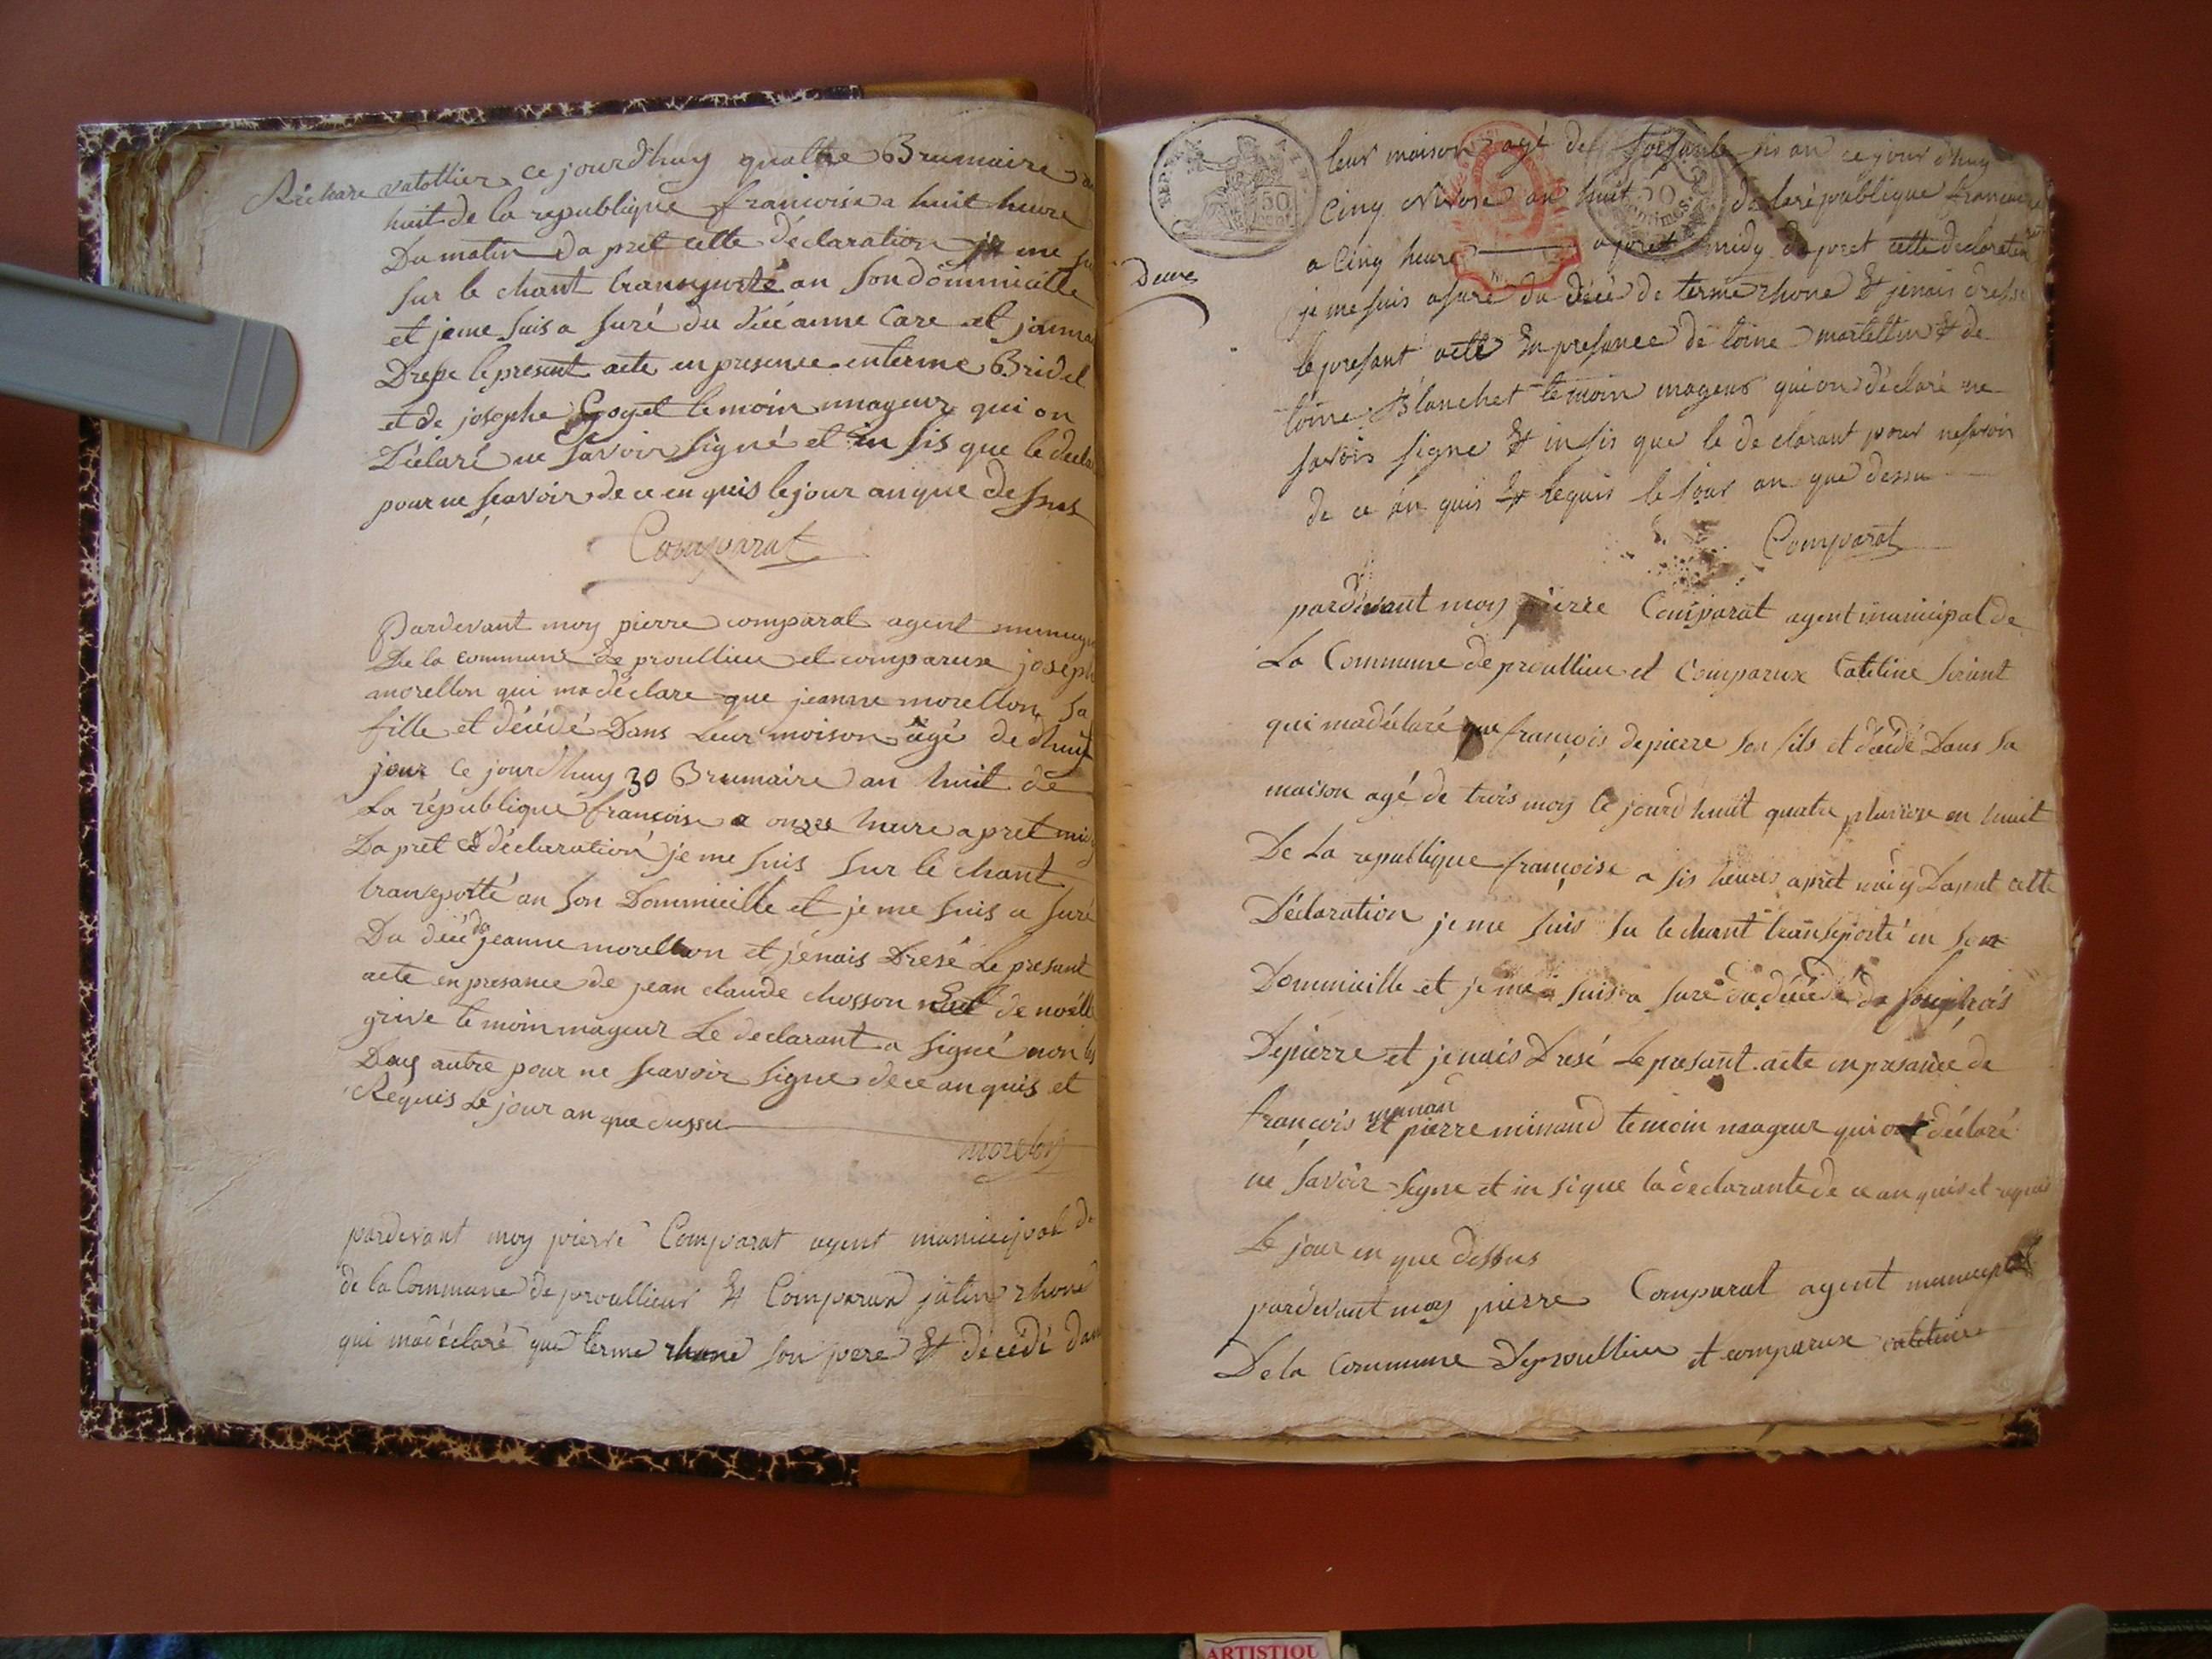 Richare vatottier ce jourd'huy quattre Brumaire an
huit de la republique francoise a huit heure
Du matin Da pret cette déclaration je me
sur le chant transporté an son dommicille
et je me suis a suré du décé anne Care et
Dresse le present acte en presence enterme Bridel
et de josephe Goyet temoin mageur qui on
Déclaré ne savoir signé et in sis que le decla
pour ne scavoir de ce en quis le jour an que dessus
Comparat
Pardevant moy pierre comparat agent
De la commune de proullieu et comparux joseph
morellon qui ma déclare que jeanne morellon sa
fille et décédé Dans Leur moison agé de dhuit
jour Ce jourd'huy 30 Brumaire an huit de
La république francoise a onzes heure apret
Da pret ce déclaration je me suis sur le chant
transporté an son Dommicille et je me suis a suré
Du décé de jeanne morellon et jenais Dresé Le presant
acte en presance de jean claude chosson et de noélle
grive temoin mageur Le declarant a signé non les
Deux autre pour ne scavoir signe de ce an quis et
Requis Le jour an que dussu
morellon
pardevant moy pierre Comparat agent municipal de
de la Commune de proullieus et Comparux jutin rhone
qui madéclaré que terme rhone son pere et décédé dans
REP FRA
50
centimes
leur maison agé de soisante sis an ce jour d'huy
cinq Nivose an huit de la république francoise
a cinq heure apret midy dapret cette declaration
Deces
je me suis asuré du décé de terme rhone et jenais dressé
le presant acte en presance de toine martellin et de
toine Blanchet temoin mageur qui on déclaré ne
savoir signe et in sis que le declarant pour ne savoir
de ce an quis et requis le jour an que dessu
Comparat
pardevant moy pierre Comparat agent municipal de
La Commune de proullieu et Comparux Cateline
qui madéclaré que françois depierre son fils et décédé Dans sa
maison agé de trois moy ce jourd'huit quatre pluviose an huit
De La republique françoise a sis heures apret midy Dapret cette
Déclaration je me suis su le chant transporté en son
Dommicille et je me suis a suré du décéé de françois
Depierre et jenais Dresé Le presant acte en presance de
françois manan et pierre minand temoin maageur qui ont déclaré
ne savoir signe et in si que la declarante de ce an quis et requis
Le jour en que dessus
pardevant moy pierre Comparat agent municipal
De la Commune De proullieu et comparux catelinne
ARTISTIQU